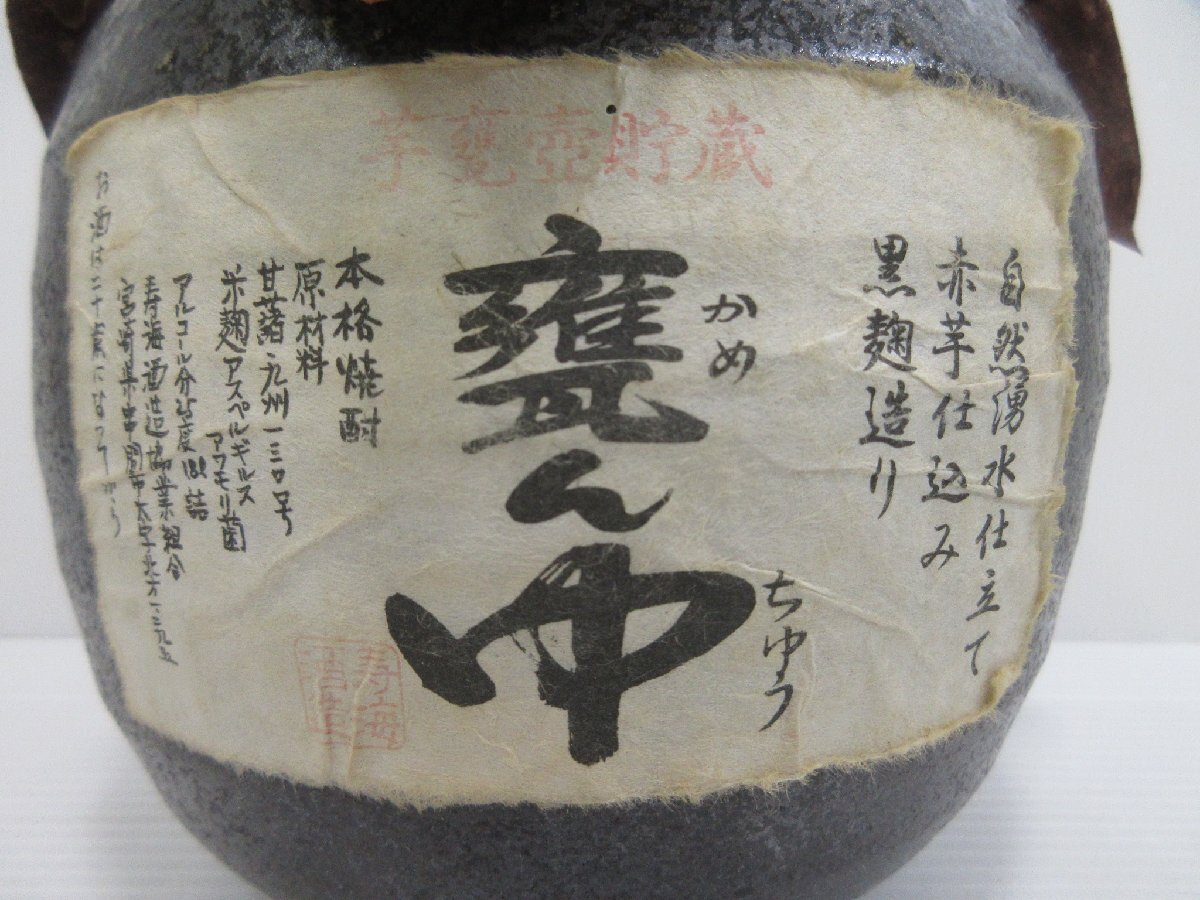 芋甕壺貯蔵
自然湧水仕立て
赤芋仕込み
黒麹造り
かめ
ちゆう
甕ん中
本格焼酎
原材料
甘藷・九州一三〇号
米麹アスペルギルス
アワモリ菌
アルコール分25度以上詰
寿海酒造協業組合
宮崎県串間市大字北方一二九五
お酒は二十歳になってから
寿海